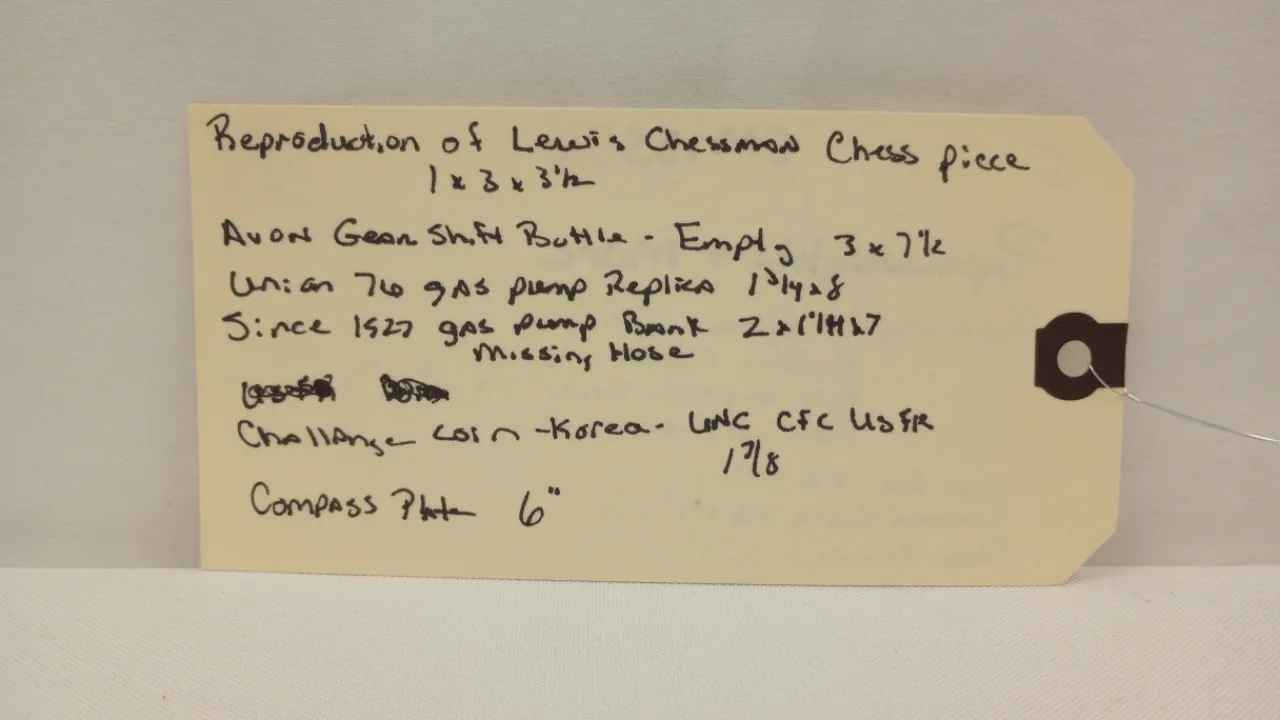 Reproduction of Lewis Chessman Chess piece
1 x 3 x 3 1/2
Avon Gear Shift Bottle - Empty 3 x 7 1/2
Union 76 gas pump Replica 1 3/4 x 8
Since 1927 gas pump Bank 2 x x 7
Missing Hose
Challange coin - Korea - UNC CFC USFK
1 7/8
Compass Plate 6"